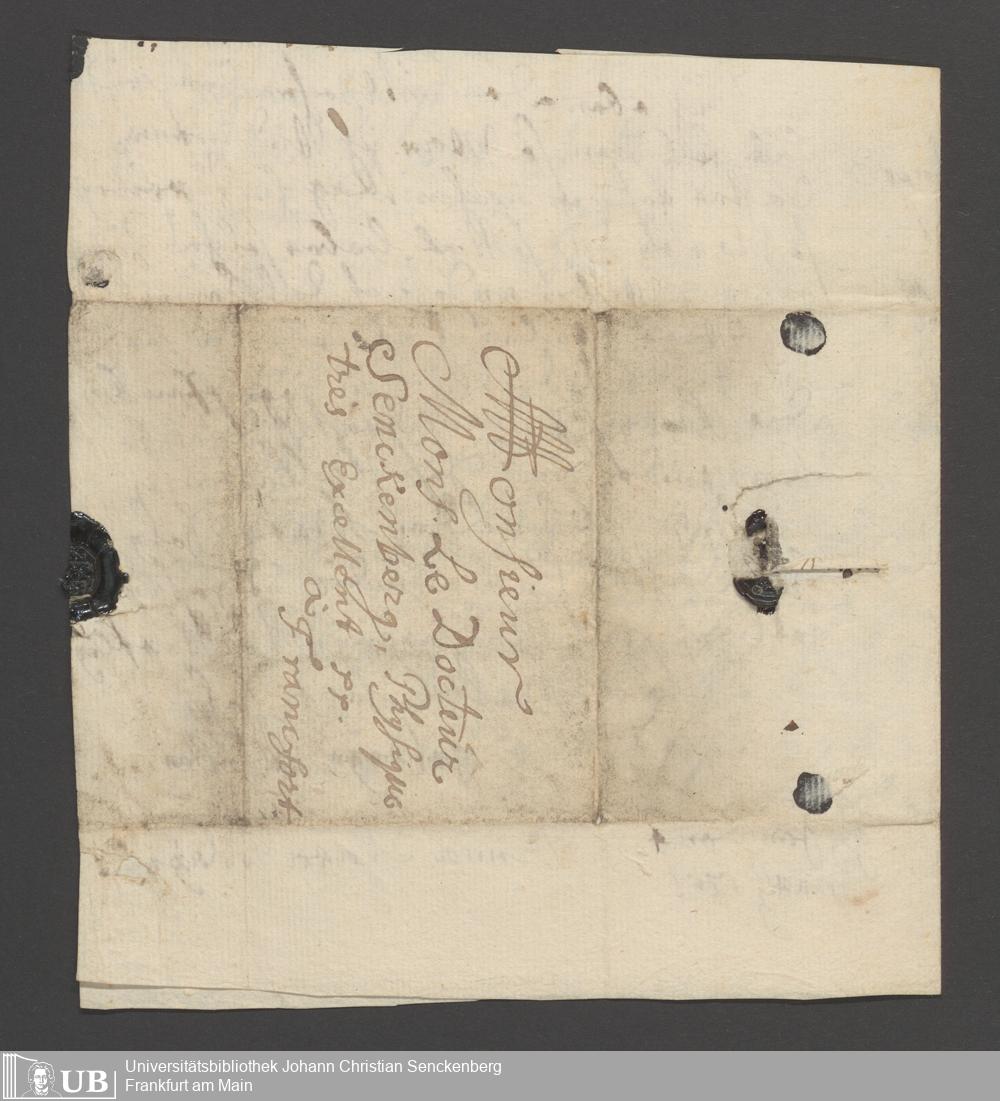 Monsieur
Mons. Le Docteur
Senckenberg, Physique
très Excellent pp.
à Francfort
UB
Universitätsbibliothek Johann Christian Senckenberg
Frankfurt am Main